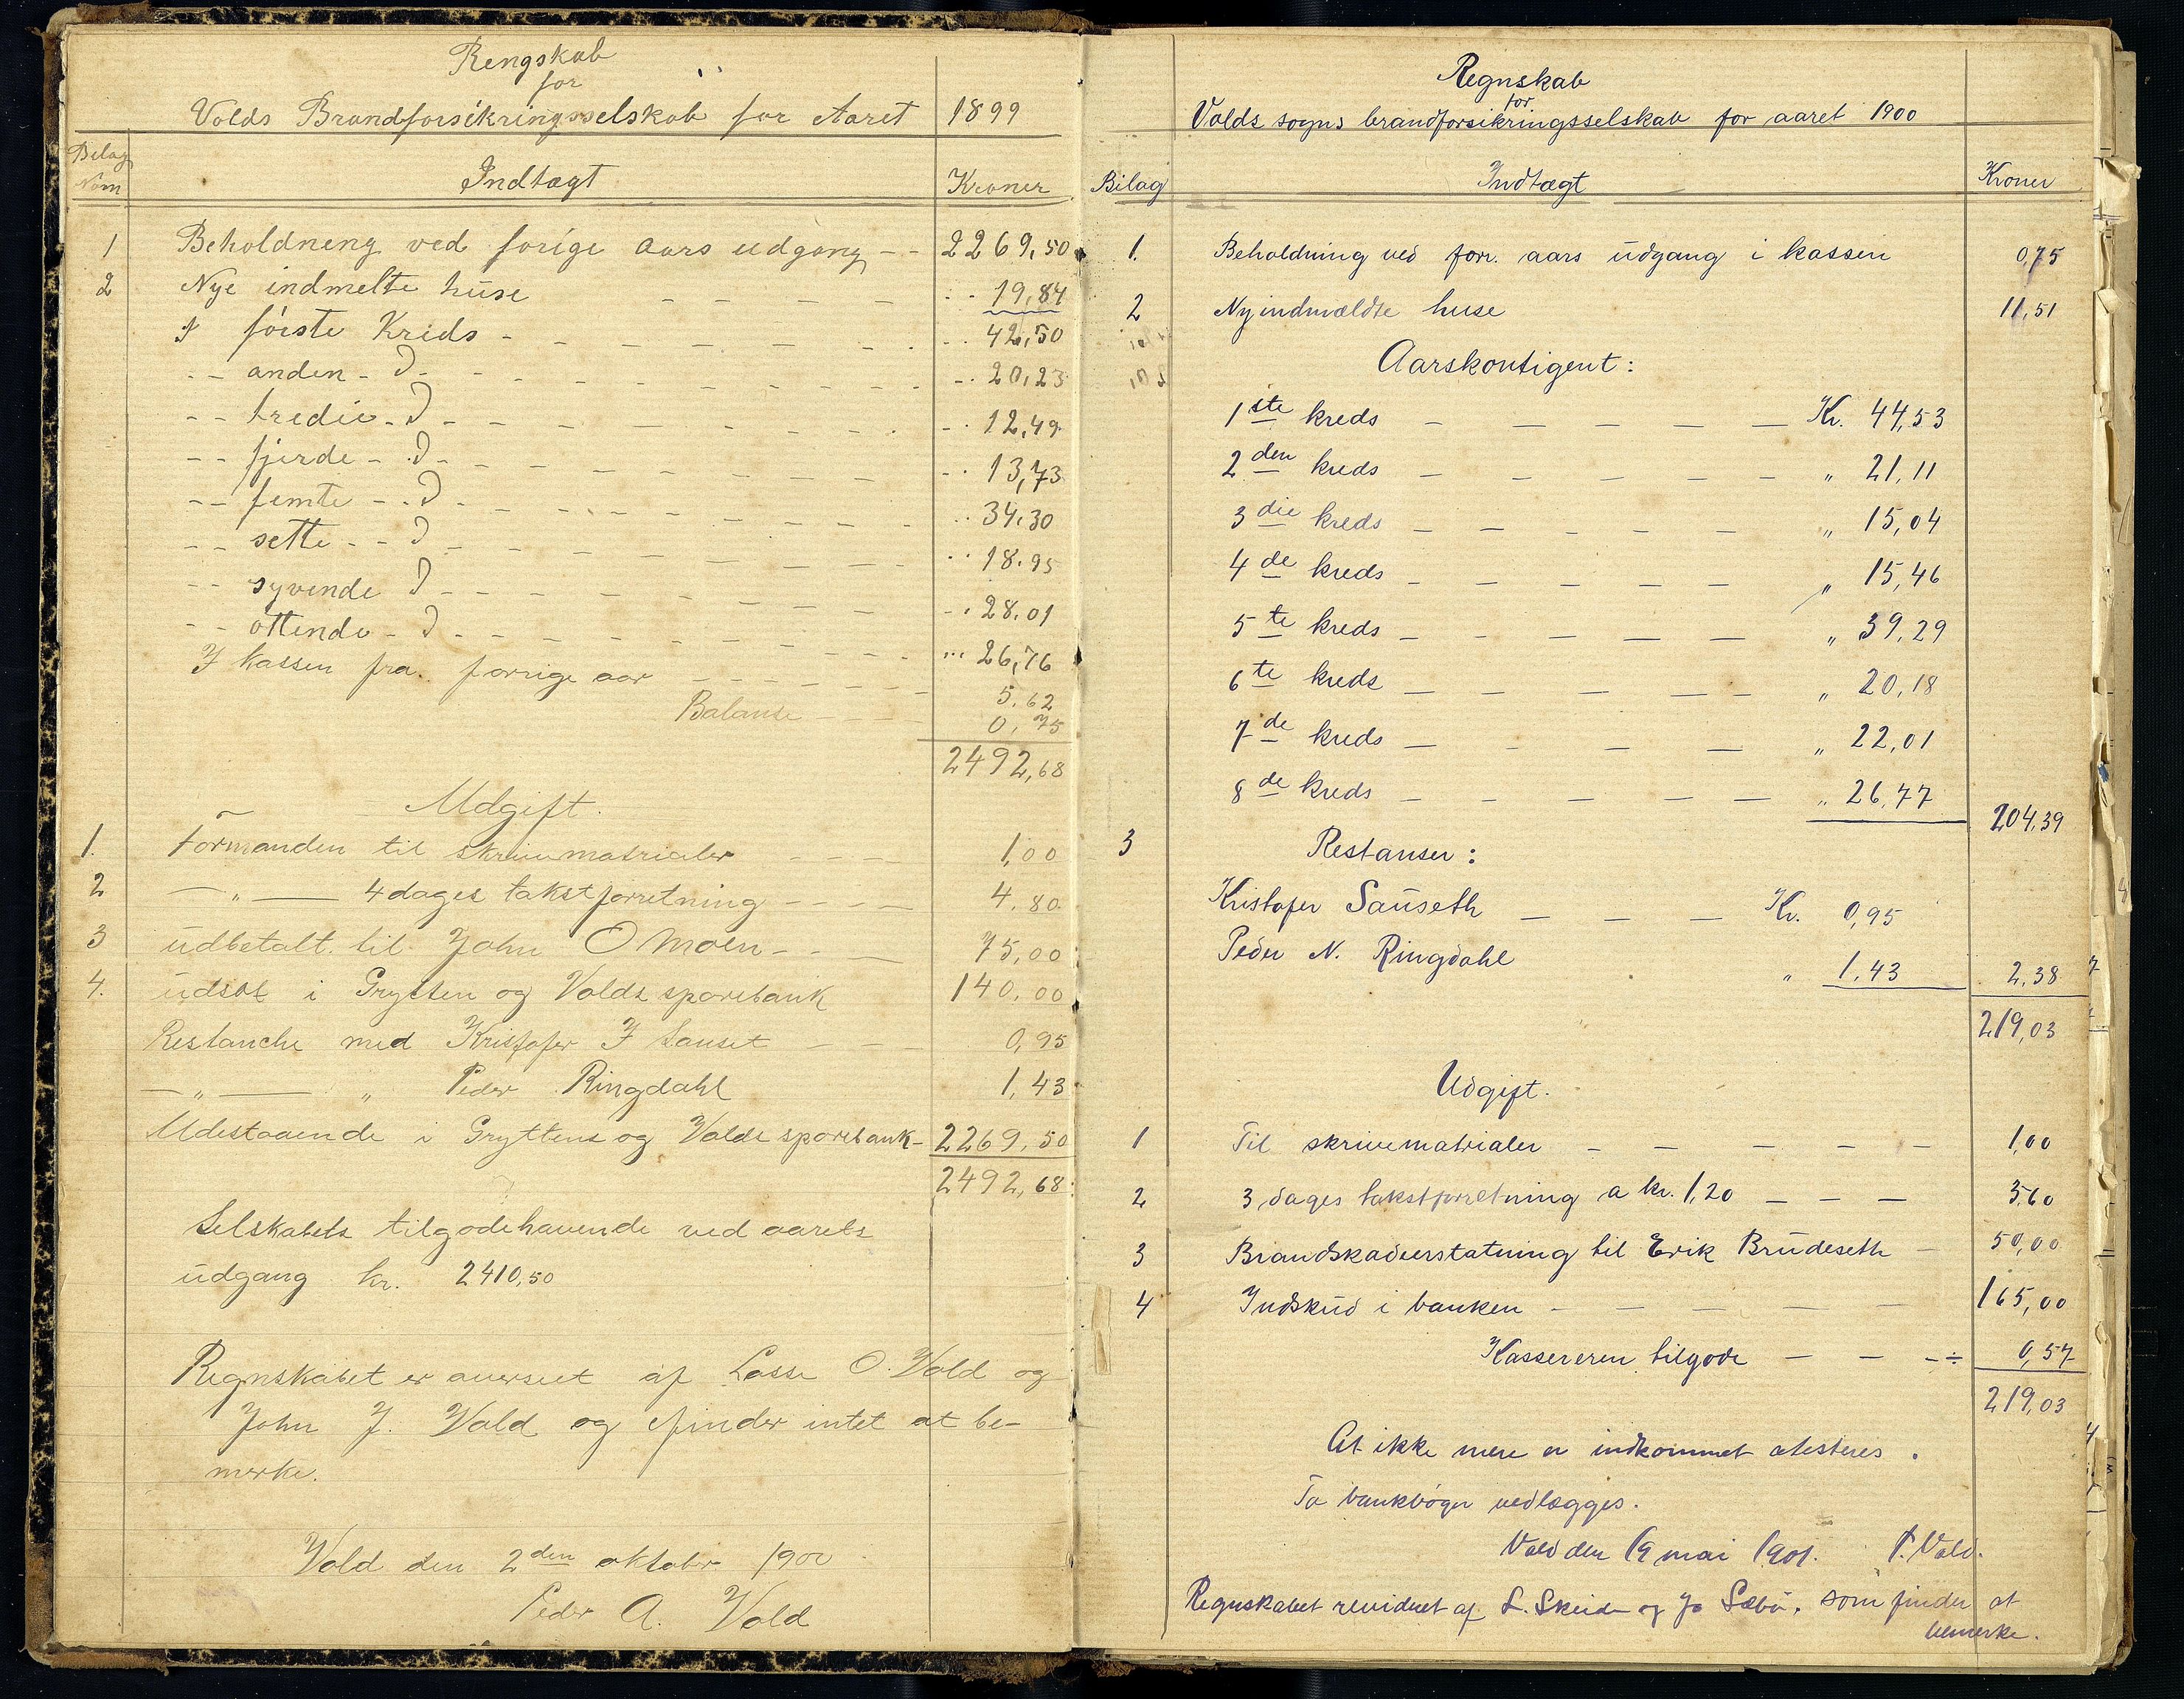 Rengskab
for
Volds Brandforsikringsselskab for Aaret 1899
Bilag Nom Indtægt Kroner
1 Beholdneng ved forige aars udgang 2269,50
2 Nye indmelte huse 19,84
I første Kreds 42,50
anden D 20,23
tredie D 12,49
fjerde D 13,73
femte D 34,30
sette D 18.95
syvende D 28.01
ottende D 26,76
I kassen fra forrige aar 5,62
Balanse 0,75
2492,68
Udgift.
1. Formanden til skrivematrialer 1,00
2 — " — 4 dages takstforretning 4.80
3 udbetalt til John O Moen 75,00
4. udsat i Grytten og Volds sparebank 140,00
Restanche med Kristofer J Sauset 0,95
— " — " Peder Ringdahl 1,43
Udestaaende i Gryttens og Volds sparebank 2269,50
2492,68
Selskabets tilgodehavende ved aarets
udgang kr. 2410,50
Regnskabet er averseet af Lasse O. Vold og
John J. Vold og finder intet at be-
merke.
Vold den 2den oktober 1900
Peder A. Vold
Regnskab
for
Volds sogns brandforsikringsselskab for aaret 1900
Bilag Indtægt Kroner
1. Beholdning ved forr. aars udgang i kassen 0,75
2 Nyindmældte huse 11,51
Aarskontigent:
1ste kreds Kr. 44,53
2den kreds " 21,11
3die kreds " 15,04
4de kreds " 15,46
5te kreds " 39,29
6te kreds " 20,18
7de kreds " 22,01
8de kreds " 26,77 204,39
3 Restanser:
Kristofer Sauseth Kr. 0,95
Peder N. Ringdahl " 1,43 2,38
219,03
Udgift.
1 Til skrivematrialer 1,00
2 3 dages takstforretning a kr. 1,20 3,60
3 Brandskadeerstatning til Erik Brudeseth 50,00
4 Indskud i banken 165,00
Kassereren tilgode ÷ 0,57
219,03
At ikke mere er indkommet atesteres.
To bankbøger vedlægges.
Vold den 19 mai 1901. P. Vold.
Regnskabet revideret af L. Skeide og Jo Sæbø, som finder at
bemerke.